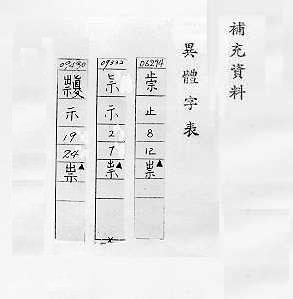 補充資料
異體字表
06294
止
8
12
祟▲
示
2
7
祟▲
示
19
24
祟▲